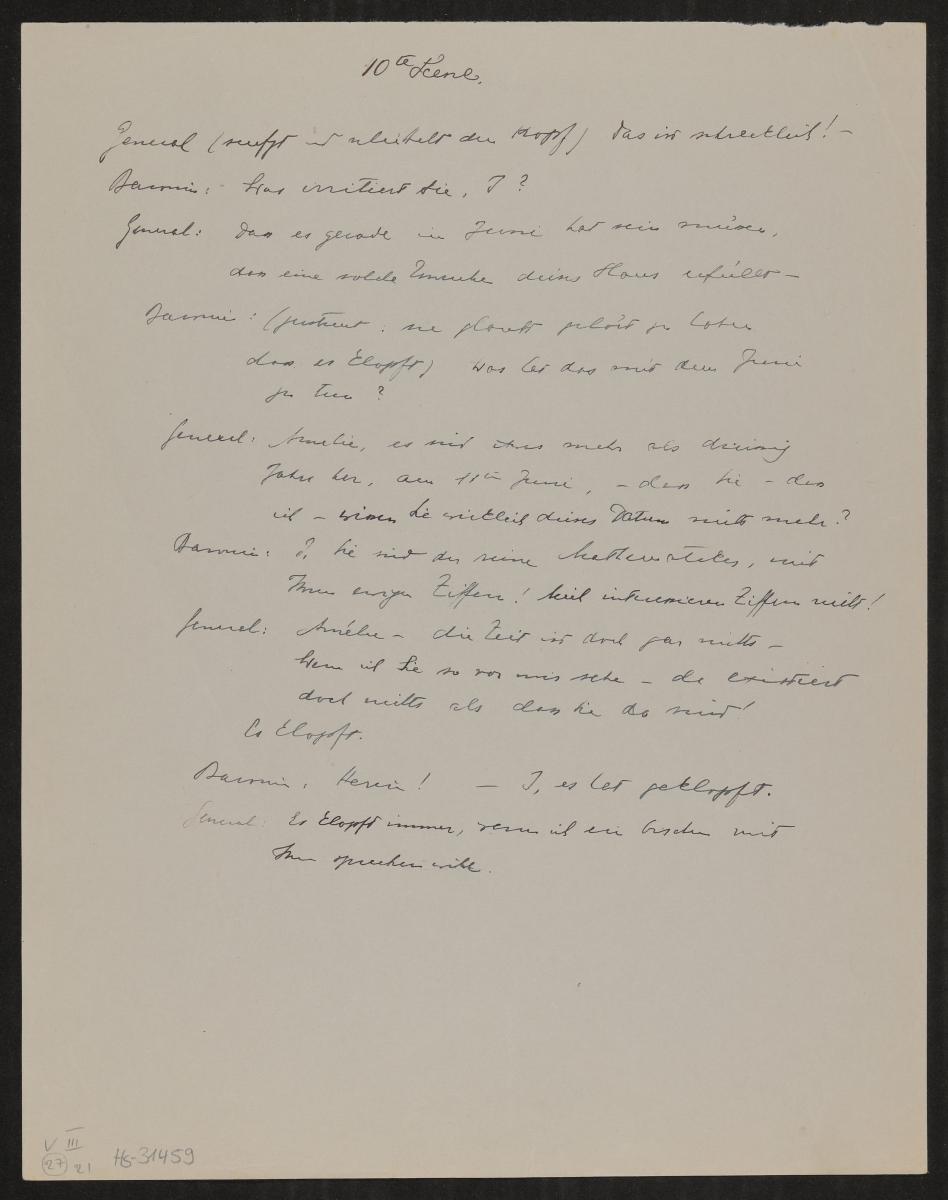 10te Scene.
General (seufzt und schüttelt den Kopf) Das ist schrecklich! –
Baronin: Was irritiert Sie, J?
General: Dass es gerade im Juni hat sein müssen,
dass eine solche Unruhe dieses Haus erfüllt –
Baronin: (zerstreut; sie glaubt gehört zu haben
dass es klopft) Was hat das mit dem Juni
zu tun?
General: Amelie, es sind etwas mehr als dreissig
Jahre her, am 11ten Juni, – dass Sie – dass
ich – wissen Sie wirklich dieses Datum nicht mehr?
Baronin: J, Sie sind der reine Mathematiker, mit
Ihren ewigen Ziffern! Mich interessieren Ziffern nicht!
General: Amélie – die Zeit ist doch gar nichts –
Wenn ich Sie so vor mir sehe – da existiert
doch nichts als dass Sie da sind!
Es klopft.
Baronin: Herein! – J, es hat geklopft.
General: Es klopft immer, wenn ich ein bischen mit
Ihnen sprechen will.
V III
27 21 Hs-31459